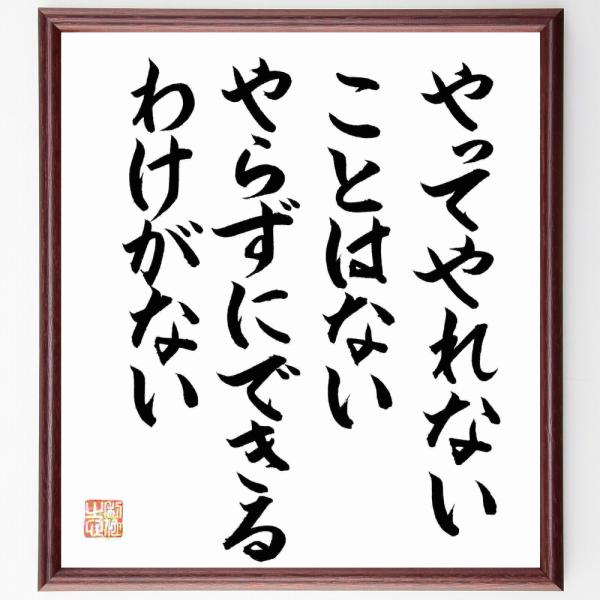 やってやれない
ことはない
やらずにできる
わけがない